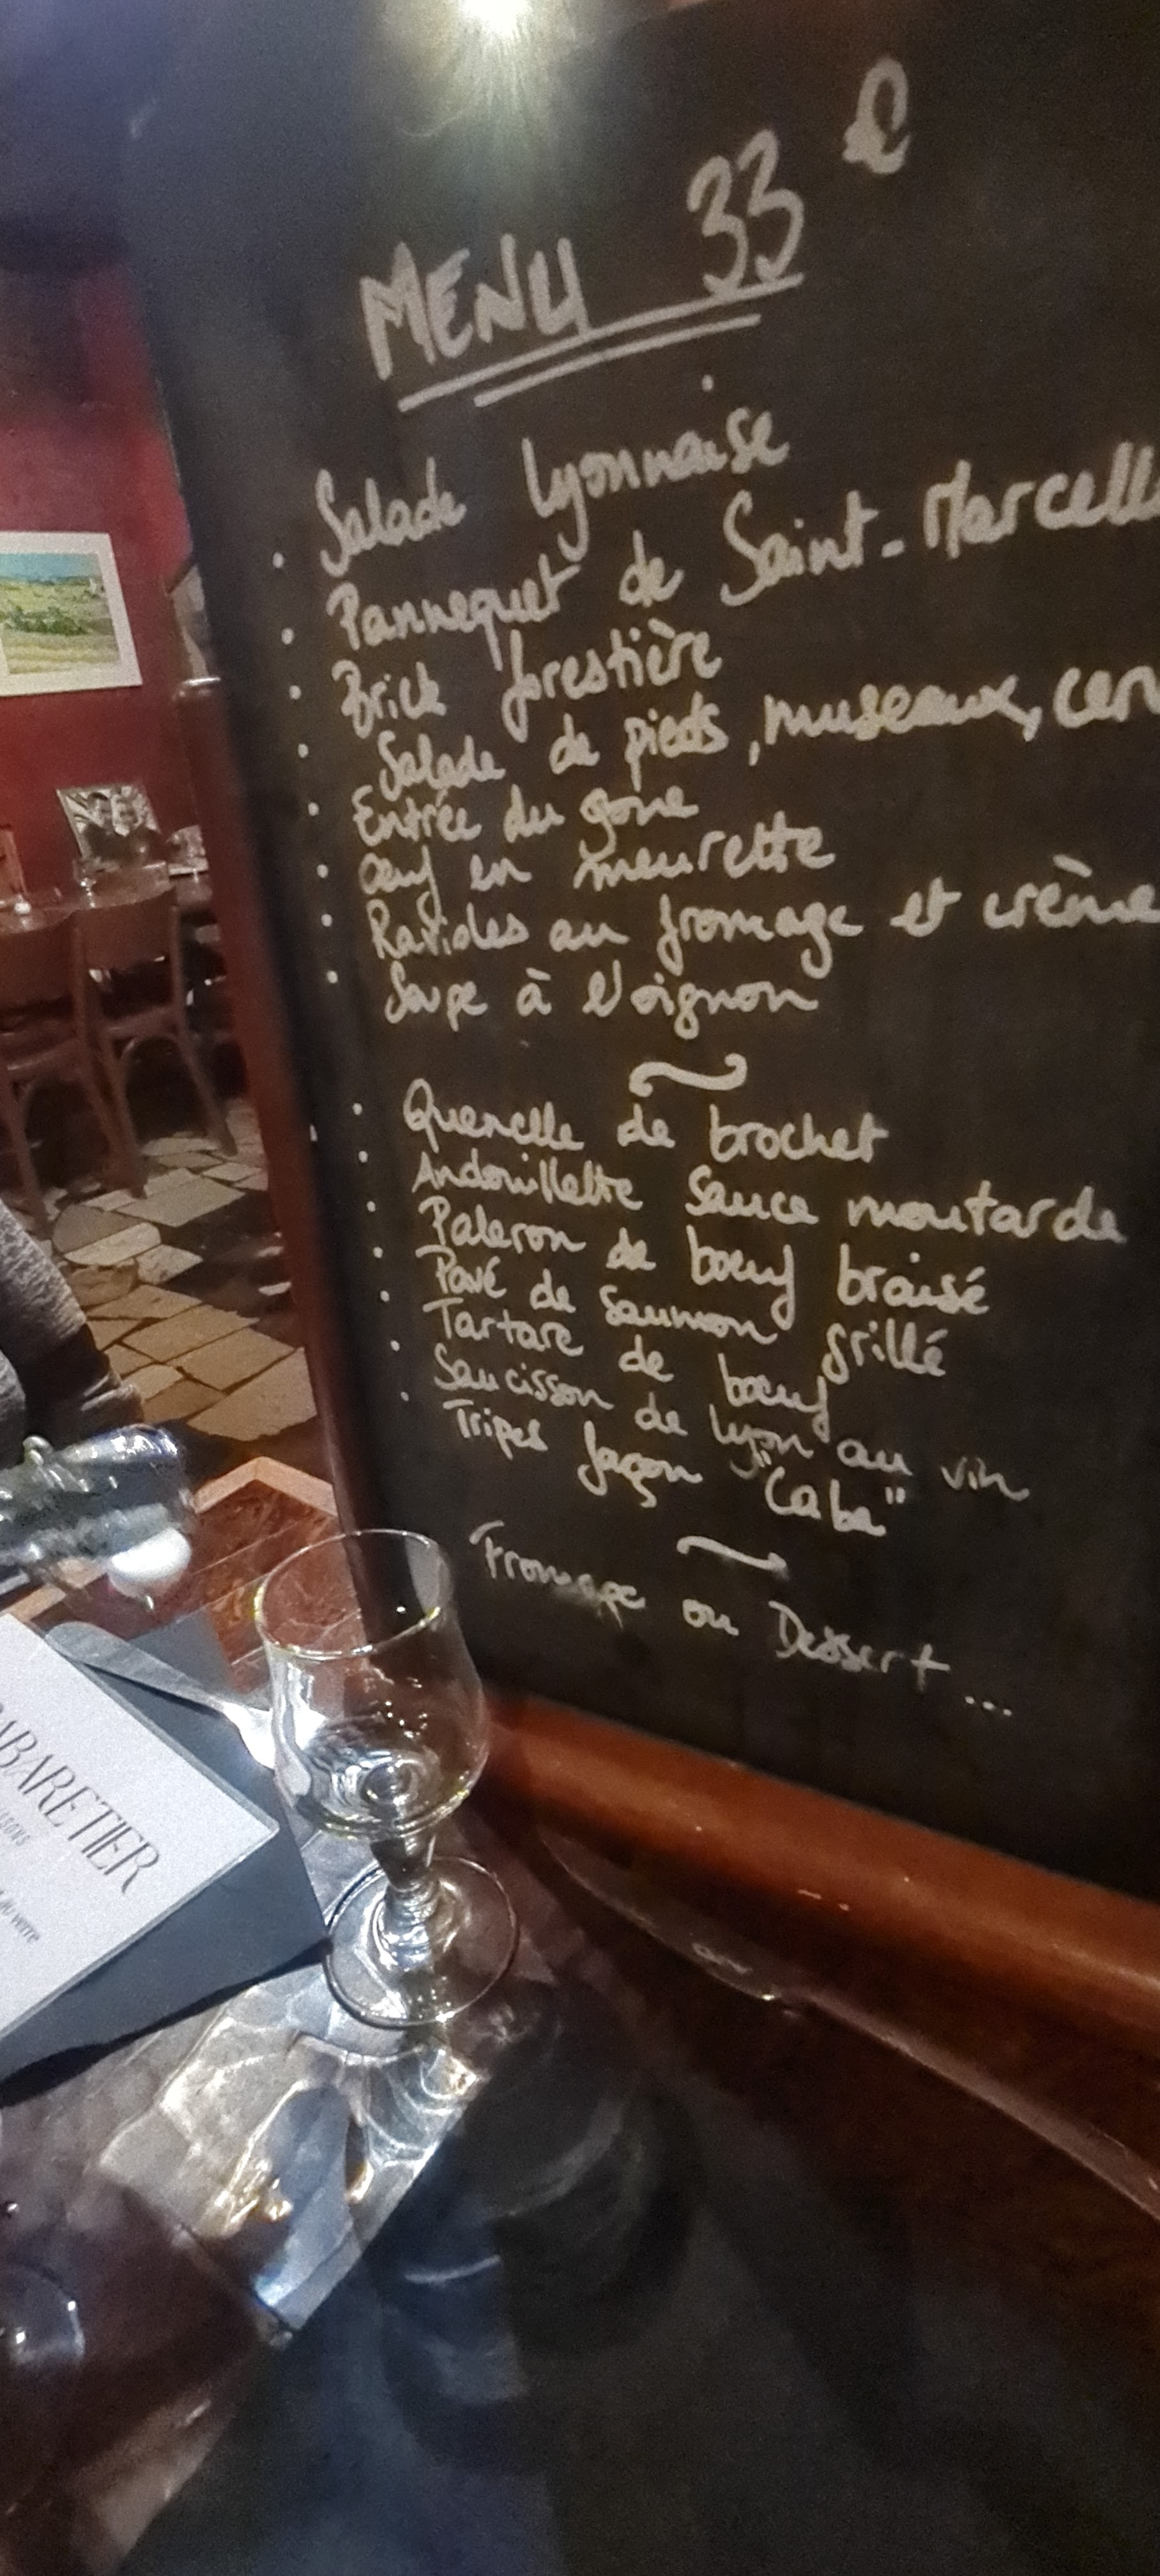 MENU 33 €
Salade lyonnaise
Pannequet de Saint-Marcell
Brick forestière
Salade de pieds, museaux, cerv
Entrée du gone
Oeuf en meurette
Ravioles au fromage et crème
Soupe à l'oignon
Quenelle de brochet
Andouillette sauce moutarde
Paleron de boeuf braisé
Pavé de saumon grillé
Tartare de boeuf
Saucisson de Lyon au vin
Tripes façon "Caba"
Fromage ou Dessert...
ABARETIER
au verre